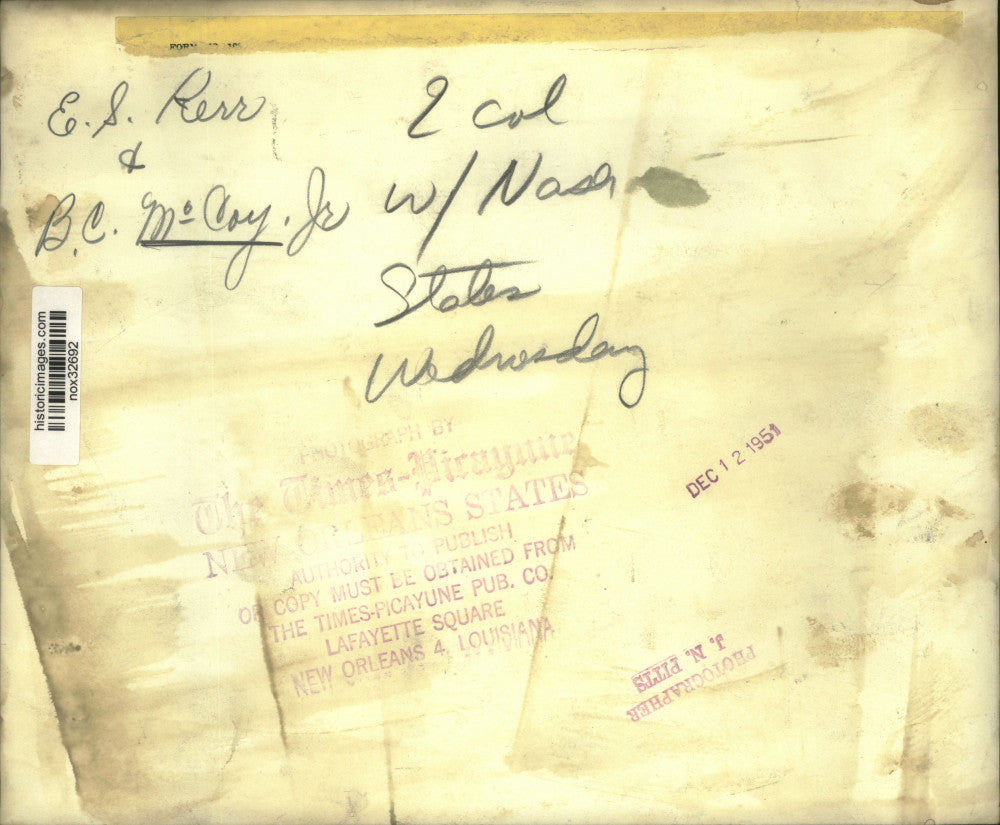 E. S. Kerr
&
B.C. McCoy, Jr
2 col
w/ Nash
States
Wednesday
historicimages.com
nox32692
PHOTOGRAPH BY
The Times-Picayune
NEW ORLEANS STATES
AUTHORITY TO PUBLISH
OR COPY MUST BE OBTAINED FROM
THE TIMES-PICAYUNE PUB. CO.
LAFAYETTE SQUARE
NEW ORLEANS 4, LOUISIANA
DEC 12 1951
J. N. PITTS
PHOTOGRAPHER